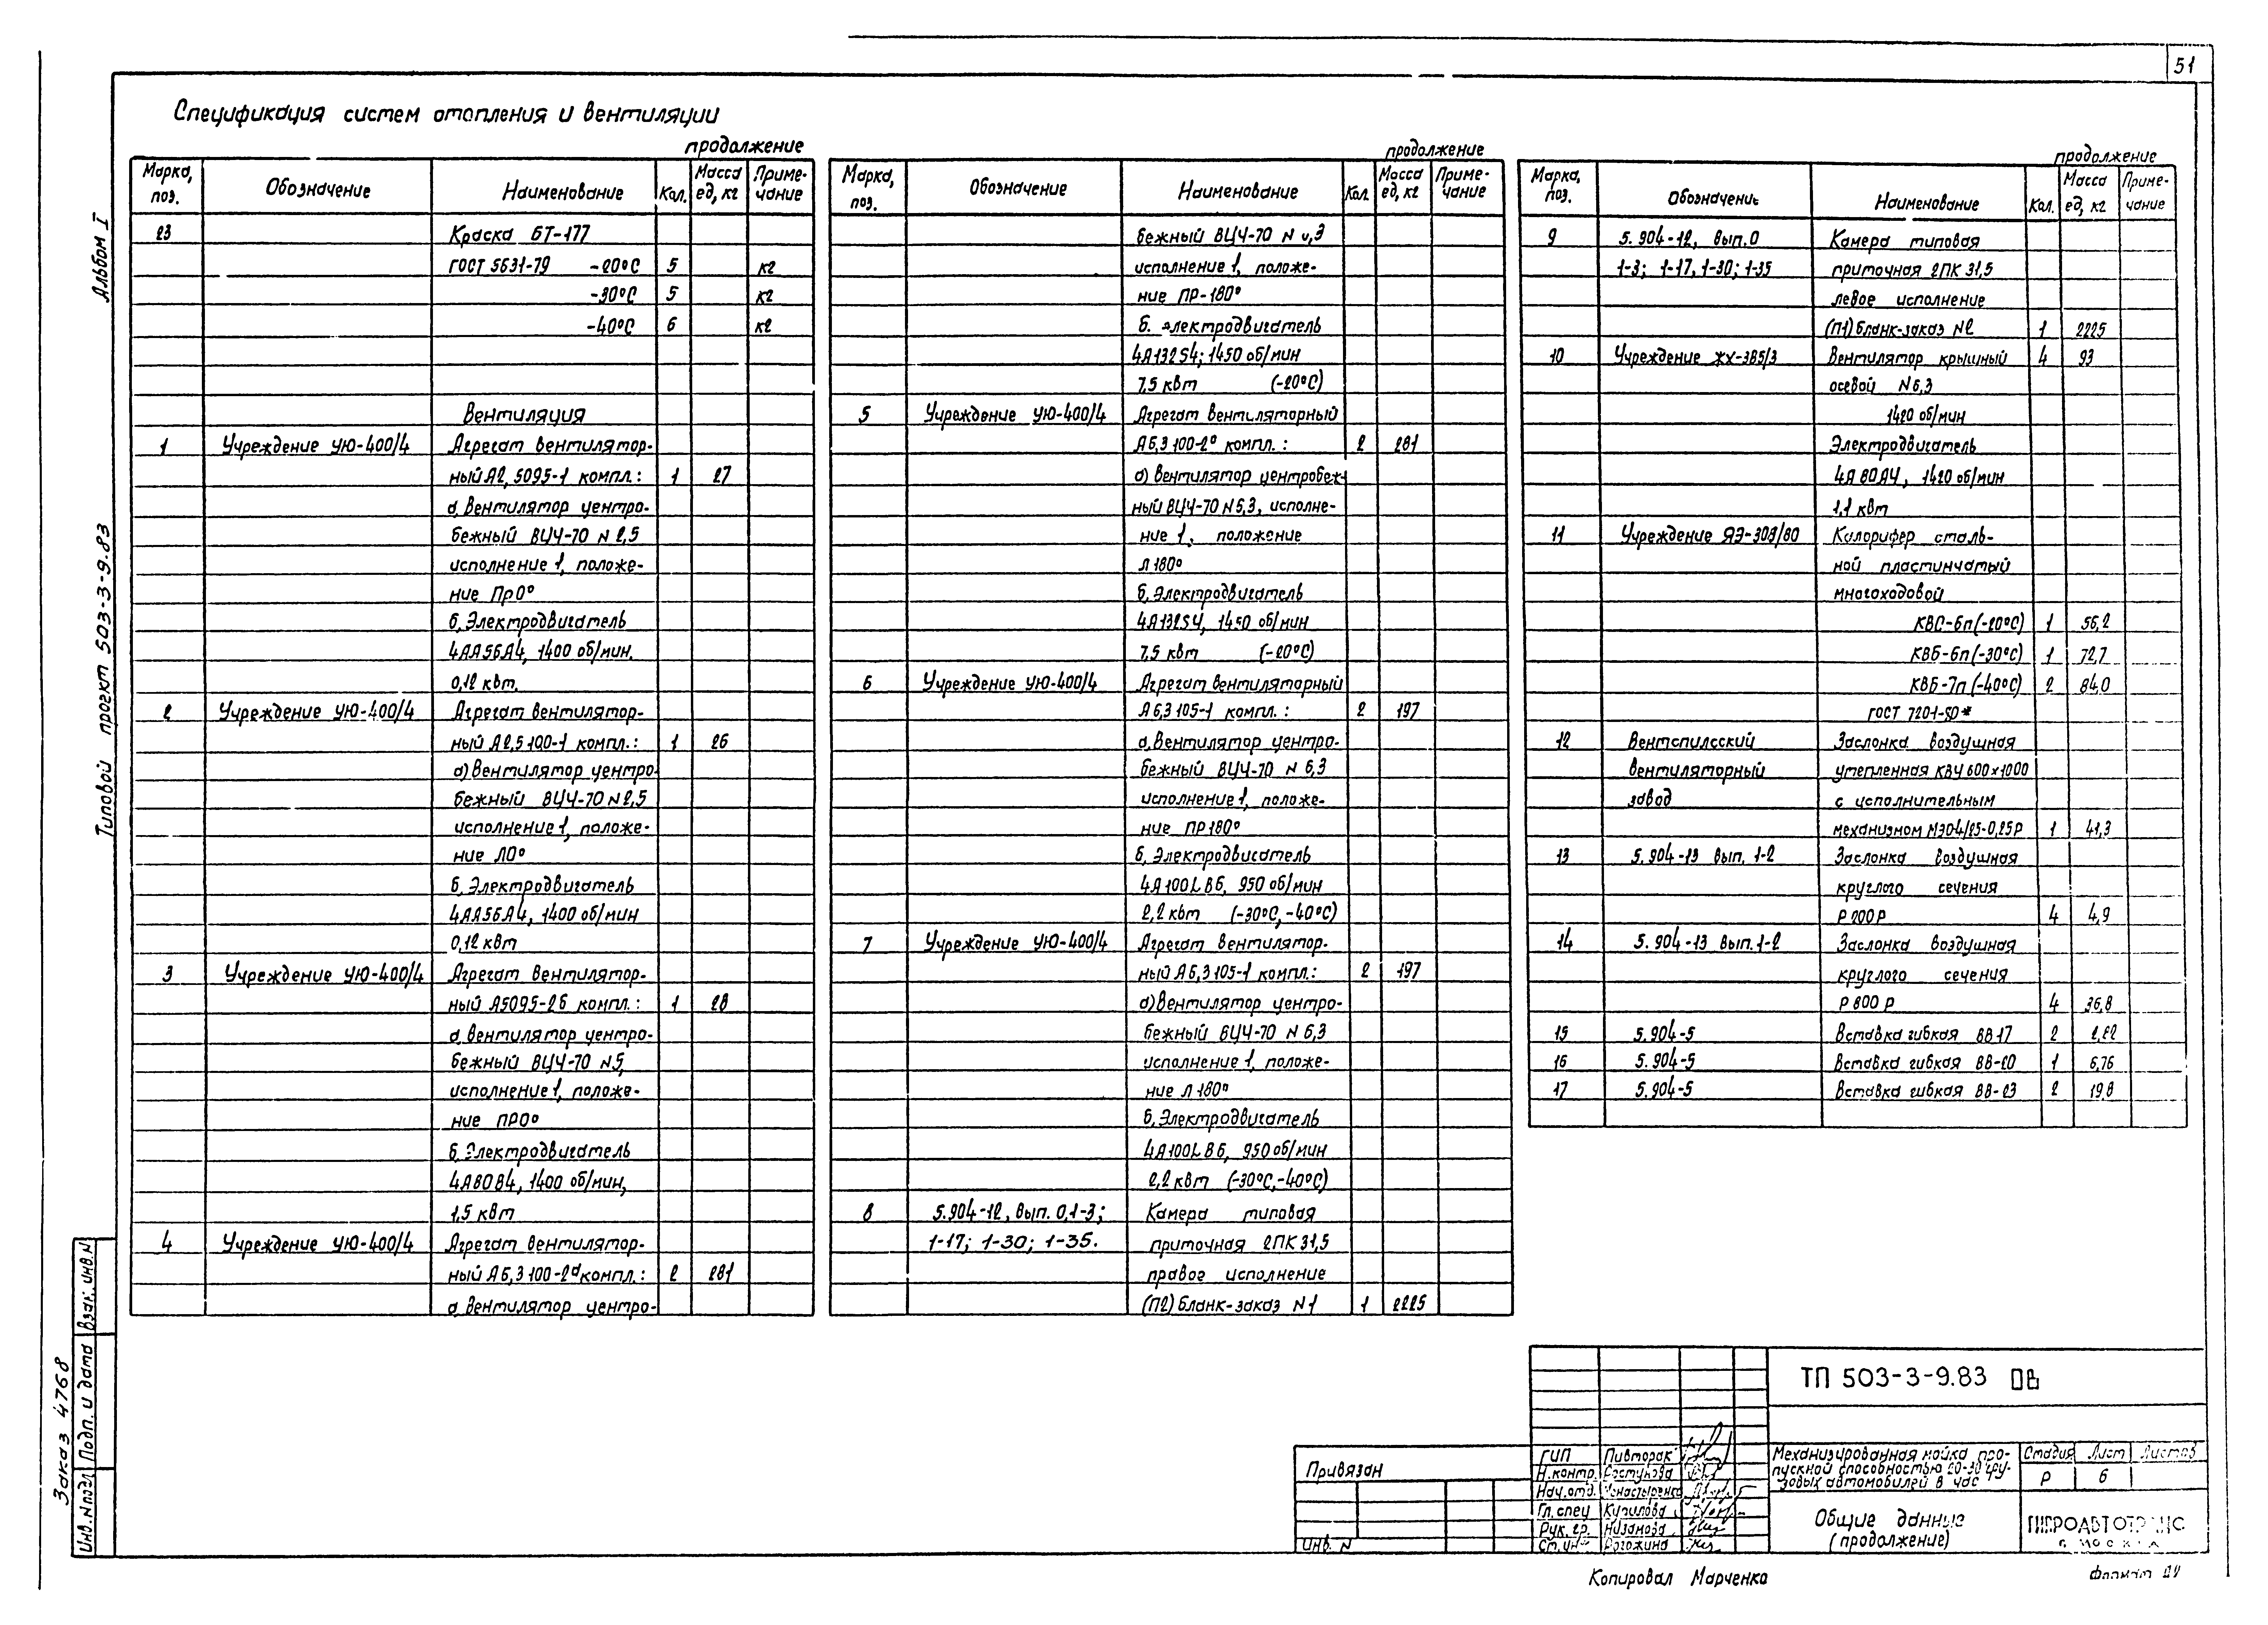 51
Спецификация систем отопления и вентиляции
продолжение
Марка, поз. Обозначение Наименование Кол. Масса ед, кг Приме-чание
23 Краска БТ-177
ГОСТ 5631-79 -20°С 5 кг
-30°С 5 кг
-40°С 6 кг
Вентиляция
1 Учреждение УЮ-400/4 Агрегат вентилятор-
ный А2,5095-1 компл.: 1 27
а, Вентилятор центро-
бежный ВЦ4-70 N 2,5
исполнение 1, положе-
ние Пр0°
б, Электродвигатель
4АА56А4, 1400 об/мин.
0,12 квт.
2 Учреждение УЮ-400/4 Агрегат вентилятор-
ный А2,5100-1 компл.: 1 26
а) Вентилятор центро
бежный ВЦ4-70 N2,5
исполнение 1, положе-
ние Л0°
б, Электродвигатель
4АА56А4, 1400 об/мин
0,12 квт
3 Учреждение УЮ-400/4 Агрегат вентилятор-
ный А5095-2б компл.: 1 28
а вентилятор центро-
бежный ВЦ4-70 N5,
исполнение 1, положе-
ние ПР0°
б, Электродвигатель
4А80В4, 1400 об/мин,
1,5 квт
4 Учреждение УЮ-400/4 Агрегат вентилятор-
ный А6,3100-2а компл.: 2 281
а вентилятор центро-
продолжение
Марка, поз. Обозначение Наименование Кол. Масса ед, кг Приме-чание
бежный ВЦ4-70 N 6,3
исполнение 1, положе-
ние ПР-180°
б. электродвигатель
4А132S4; 1450 об/мин
7,5 квт (-20°С)
5 Учреждение УЮ-400/4 Агрегат вентиляторный
А6,3100-2а компл.: 2 281
а) вентилятор центробеж-
ный ВЦ4-70 N6,3, исполне-
ние 1, положение
Л 180°
б, Электродвигатель
4А132S4, 1450 об/мин
7,5 квт (-20°С)
6 Учреждение УЮ-400/4 Агрегат вентиляторный
А6,3105-1 компл.: 2 197
а, Вентилятор центро-
бежный ВЦ4-70 N 6,3
исполнение 1, положе-
ние ПР180°
б, Электродвигатель
4А100LВ6, 950 об/мин
2,2 квт (-30°С, -40°С)
7 Учреждение УЮ-400/4 Агрегат вентилятор-
ный А6,3105-1 компл.: 2 197
а) Вентилятор центро-
бежный ВЦ4-70 N 6,3
исполнение 1, положе-
ние Л 180°
б, Электродвигатель
4А100LВ6, 950 об/мин
2,2 квт (-30°С,-40°С)
8 5.904-12, вып. 0,1-3; Камера типовая
1-17; 1-30; 1-35. приточная 2ПК 31,5
правое исполнение
(П2) бланк-заказ N1 1 2225
продолжение
Марка, поз. Обозначение Наименование Кол. Масса ед, кг Приме-чание
9 5.904-12, вып.0 Камера типовая
1-3; 1-17, 1-30; 1-35 приточная 2ПК 31,5
левое исполнение
(П1) бланк-заказ N2 1 2225
10 Учреждение ЖХ-385/3 Вентилятор крышный 4 93
осевой N6,3
1420 об/мин
Электродвигатель
4А80А4, 1420 об/мин
1,1 квт
11 Учреждение ЯЭ-308/80 Калорифер сталь-
ной пластинчатый
многоходовой
КВС-6п(-20°С) 1 56,2
КВБ-6п(-30°С) 1 72,7
КВБ-7п(-40°С) 2 84,0
ГОСТ 7201-80*
12 Вентспилсский Заслонка воздушная
вентиляторный утепленная КВУ 600×1000
завод с исполнительным
механизмом МЭО4/25-0,25Р 1 41,3
13 5.904-13 вып. 1-2 Заслонка воздушная
круглого сечения
Р 200 Р 4 4,9
14 5.904-13 вып.1-2 Заслонка воздушная
круглого сечения
Р 800 Р 4 36,8
15 5.904-5 Вставка гибкая ВВ17 2
16 5.904-5 Вставка гибкая ВВ-20 1 6,76
17 5.904-5 Вставка гибкая ВВ-23 2 19,8
Альбом I
Типовой проект 503-3-9.83
Заказ 4768
Инв.N подл Подп. и дата Взаг. инв.N
Привязан
Инв. N
ТП 503-3-9.83 ОВ
ГИП Пивторак
Н.контр. Растунова
Нач.отд.
Гл.спец
Рук.гр. Низамова
Ст.инж Рогожина
Механизированная мойка про-
пускной способностью 20-30 гру-
зовых автомобилей в час
Стадия Лист Листов
Р 6
Общие данные
(продолжение)
ГИПРОАВТОТРАНС
г. МОСКВА
Копировал Марченко
Формат